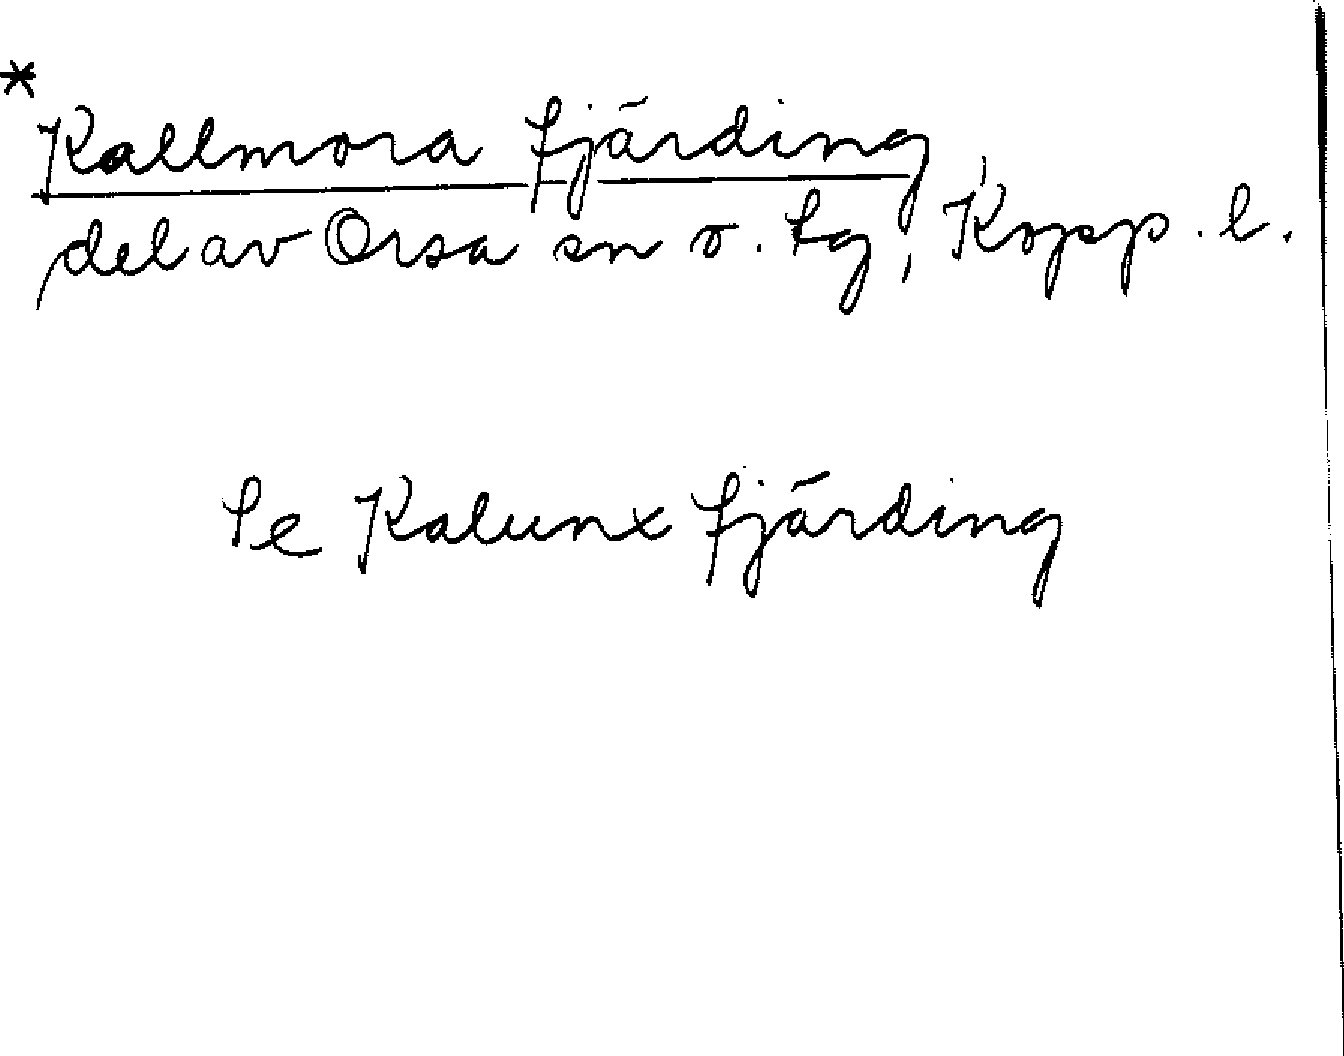 *
Kallmora fjärding
del av Orsa sn o. tg, Kopp. l.
Se Kalunx fjärding